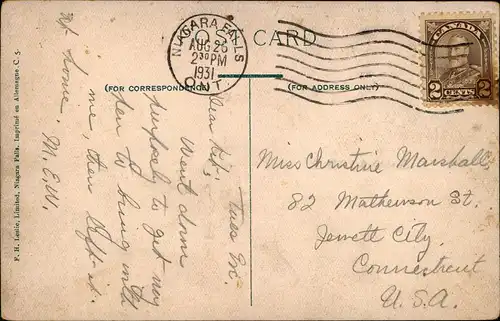 POST CARD
NIAGARA FALLS
AUG 26
2 30 PM
1931
ONT.
CANADA
2 CENTS 2
(FOR CORRESPONDENCE)
(FOR ADDRESS ONLY)
Tues Ev.
Dear Kid;
Went down
purposly to get my
pen to bring with
me, then left it
at home. M.E.W.
Miss Christine Marshall,
82 Mathewson St.
Jewett City,
Connecticut
U.S.A.
F. H. Leslie, Limited, Niagara Falls. Imprimé en Allemagne C. S.